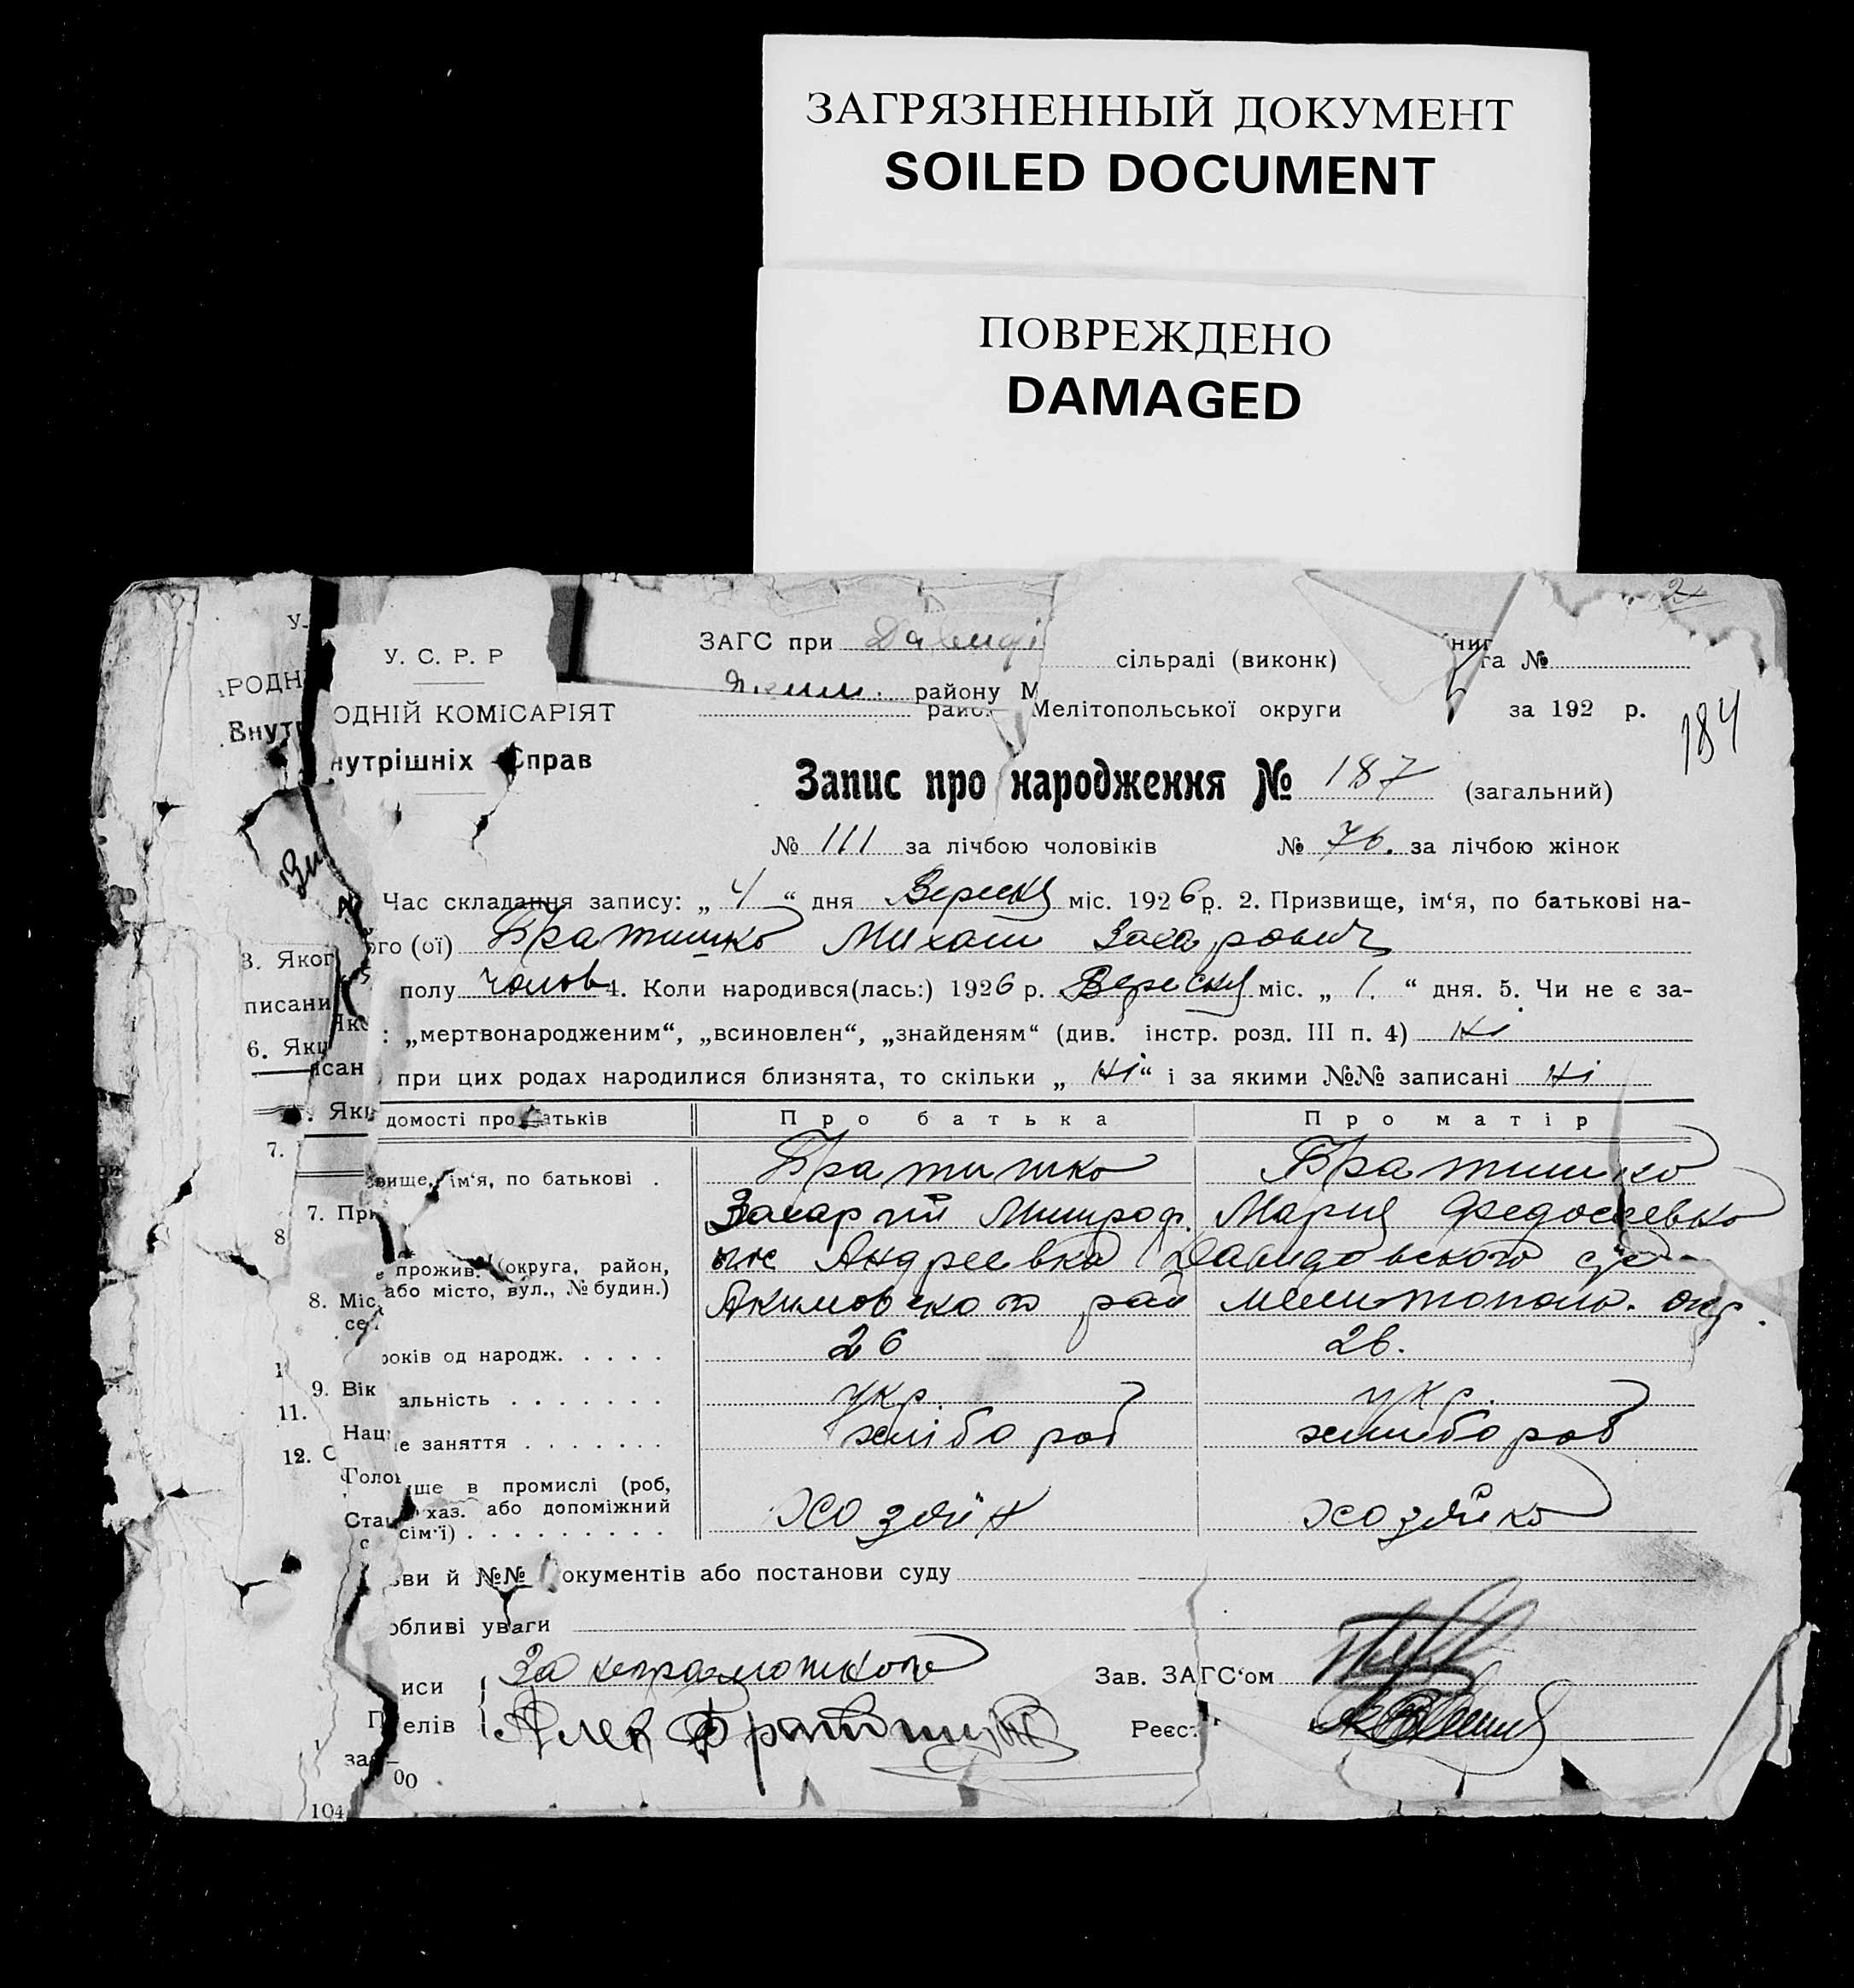 ЗАГРЯЗНЕННЫЙ ДОКУМЕНТ
SOILED DOCUMENT
ПОВРЕЖДЕНО
DAMAGED
2
У. С. Р. Р
ЗАГС при
сільраді (виконк)
№
району М
Мелітопольської округи
за 192 р.
184
ОДНІЙ КОМІСАРІЯТ
нутрішніх Справ
Запис про народження № 187 (загальний)
№ 111 за лічбою чоловіків № 76. за лічбою жінок
Час складання запису: „ 4 “ дня Вересня міс. 1926 р. 2. Призвище, ім‘я, по батькові на-
ого (ої) Братишко Михаил Захарович
полу чолов 4. Коли народився(лась:) 1926 р. Вересня міс. „ 1. “ дня. 5. Чи не є за-
: „мертвонародженим“, „всиновлен“, „знайденям“ (див. інстр. розд. III п. 4) ні
при цих родах народилися близнята, то скільки „ ні “ і за якими №№ записані ні
домості про батьків Про батька Про матір
вище, ім‘я, по батькові . Братишко Братишко
Захарий Митроф. Мария Федосеевна
прожив. (округа, район, пос Андреевка Давидовского с/с
або місто, вул., № будин.) Акимовского рай мелитополь. окр.
років од народж. . . . . 26 26.
альність . . . . . . . укр. укр.
е заняття . . . . . . . хлібороб хлибороб
ще в промислі (роб,
хаз. або допоміжний хозяйн хозяйка
сім‘ї) . . . . . . . . .
ви й №№ документів або постанови суду
обливі уваги
иси За неграмотного Зав. ЗАГС‘ом
елів Алек Братишко Реєст
3. Яког
писани
6. Якщ
7.
7. При
8
8. Міс
9. Вік
11.
Наці
12. С
Голов
Стан
104